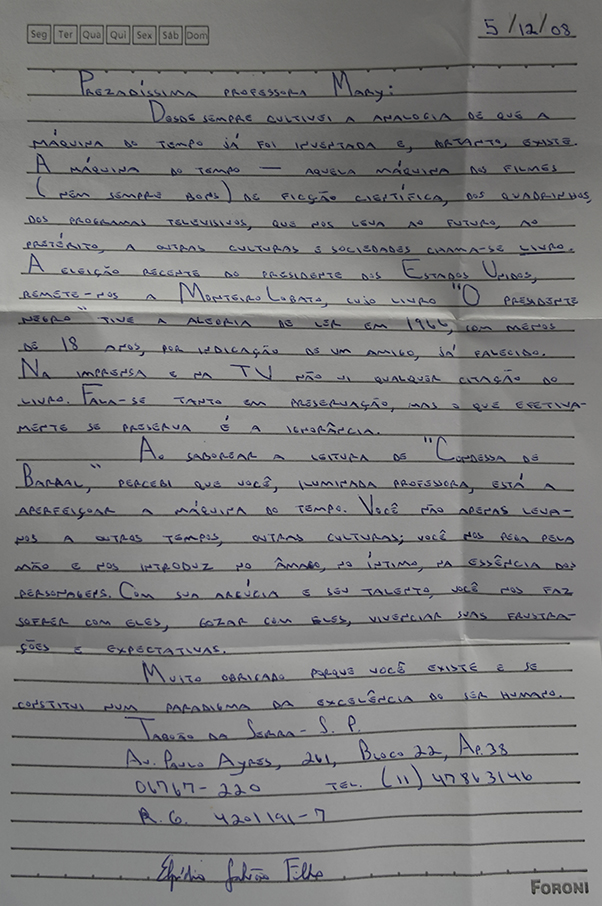 Seg Ter Qua Qui Sex Sáb Dom
5/12/08
PREZADÍSSIMA PROFESSORA MARY:
DESDE SEMPRE CULTIVEI A ANALOGIA DE QUE A
MÁQUINA DO TEMPO JÁ FOI INVENTADA E, PORTANTO, EXISTE.
A MÁQUINA DO TEMPO — AQUELA MÁQUINA DOS FILMES
(NEM SEMPRE BONS) DE FICÇÃO CIENTÍFICA, DOS QUADRINHOS,
DOS PROGRAMAS TELEVISIVOS, QUE NOS LEVA AO FUTURO, AO
PRETÉRITO, A OUTRAS CULTURAS E SOCIEDADES CHAMA-SE LIVRO.
A ELEIÇÃO RECENTE DO PRESIDENTE DOS ESTADOS UNIDOS,
REMETE-NOS A MONTEIRO LOBATO, CUJO LIVRO "O PRESIDENTE
NEGRO" TIVE A ALEGRIA DE LER EM 1966, COM MENOS
DE 18 ANOS, POR INDICAÇÃO DE UM AMIGO, JÁ FALECIDO.
NA IMPRENSA E NA TV NÃO VI QUALQUER CITAÇÃO DO
LIVRO. FALA-SE TANTO EM PRESERVAÇÃO, MAS O QUE EFETIVA-
MENTE SE PRESERVA É A IGNORÂNCIA.
AO SABOREAR A LEITURA DE "CONDESSA DE
BARRAL," PERCEBI QUE VOCÊ, ILUMINADA PROFESSORA, ESTÁ A
APERFEIÇOAR A MÁQUINA DO TEMPO. VOCÊ NÃO APENAS LEVA-
NOS A OUTROS TEMPOS, OUTRAS CULTURAS; VOCÊ NOS PEGA PELA
MÃO E NOS INTRODUZ NO ÂMAGO, NO ÍNTIMO, NA ESSÊNCIA DOS
PERSONAGENS. COM SUA ARGÚCIA E SEU TALENTO, VOCÊ NOS FAZ
SOFRER COM ELES, GOZAR COM ELES, VIVENCIAR SUAS FRUSTRA-
ÇÕES E EXPECTATIVAS.
MUITO OBRIGADO PORQUE VOCÊ EXISTE E SE
CONSTITUI NUM PARADIGMA DA EXCELÊNCIA DO SER HUMANO.
TABOÃO DA SERRA - S. P.
AV. PAULO AYRES, 261, BLOCO 22, AP. 38
06767-220 TEL. (11) 47863146
R.G. 4201191-7
Elpídio Filho
FORONI